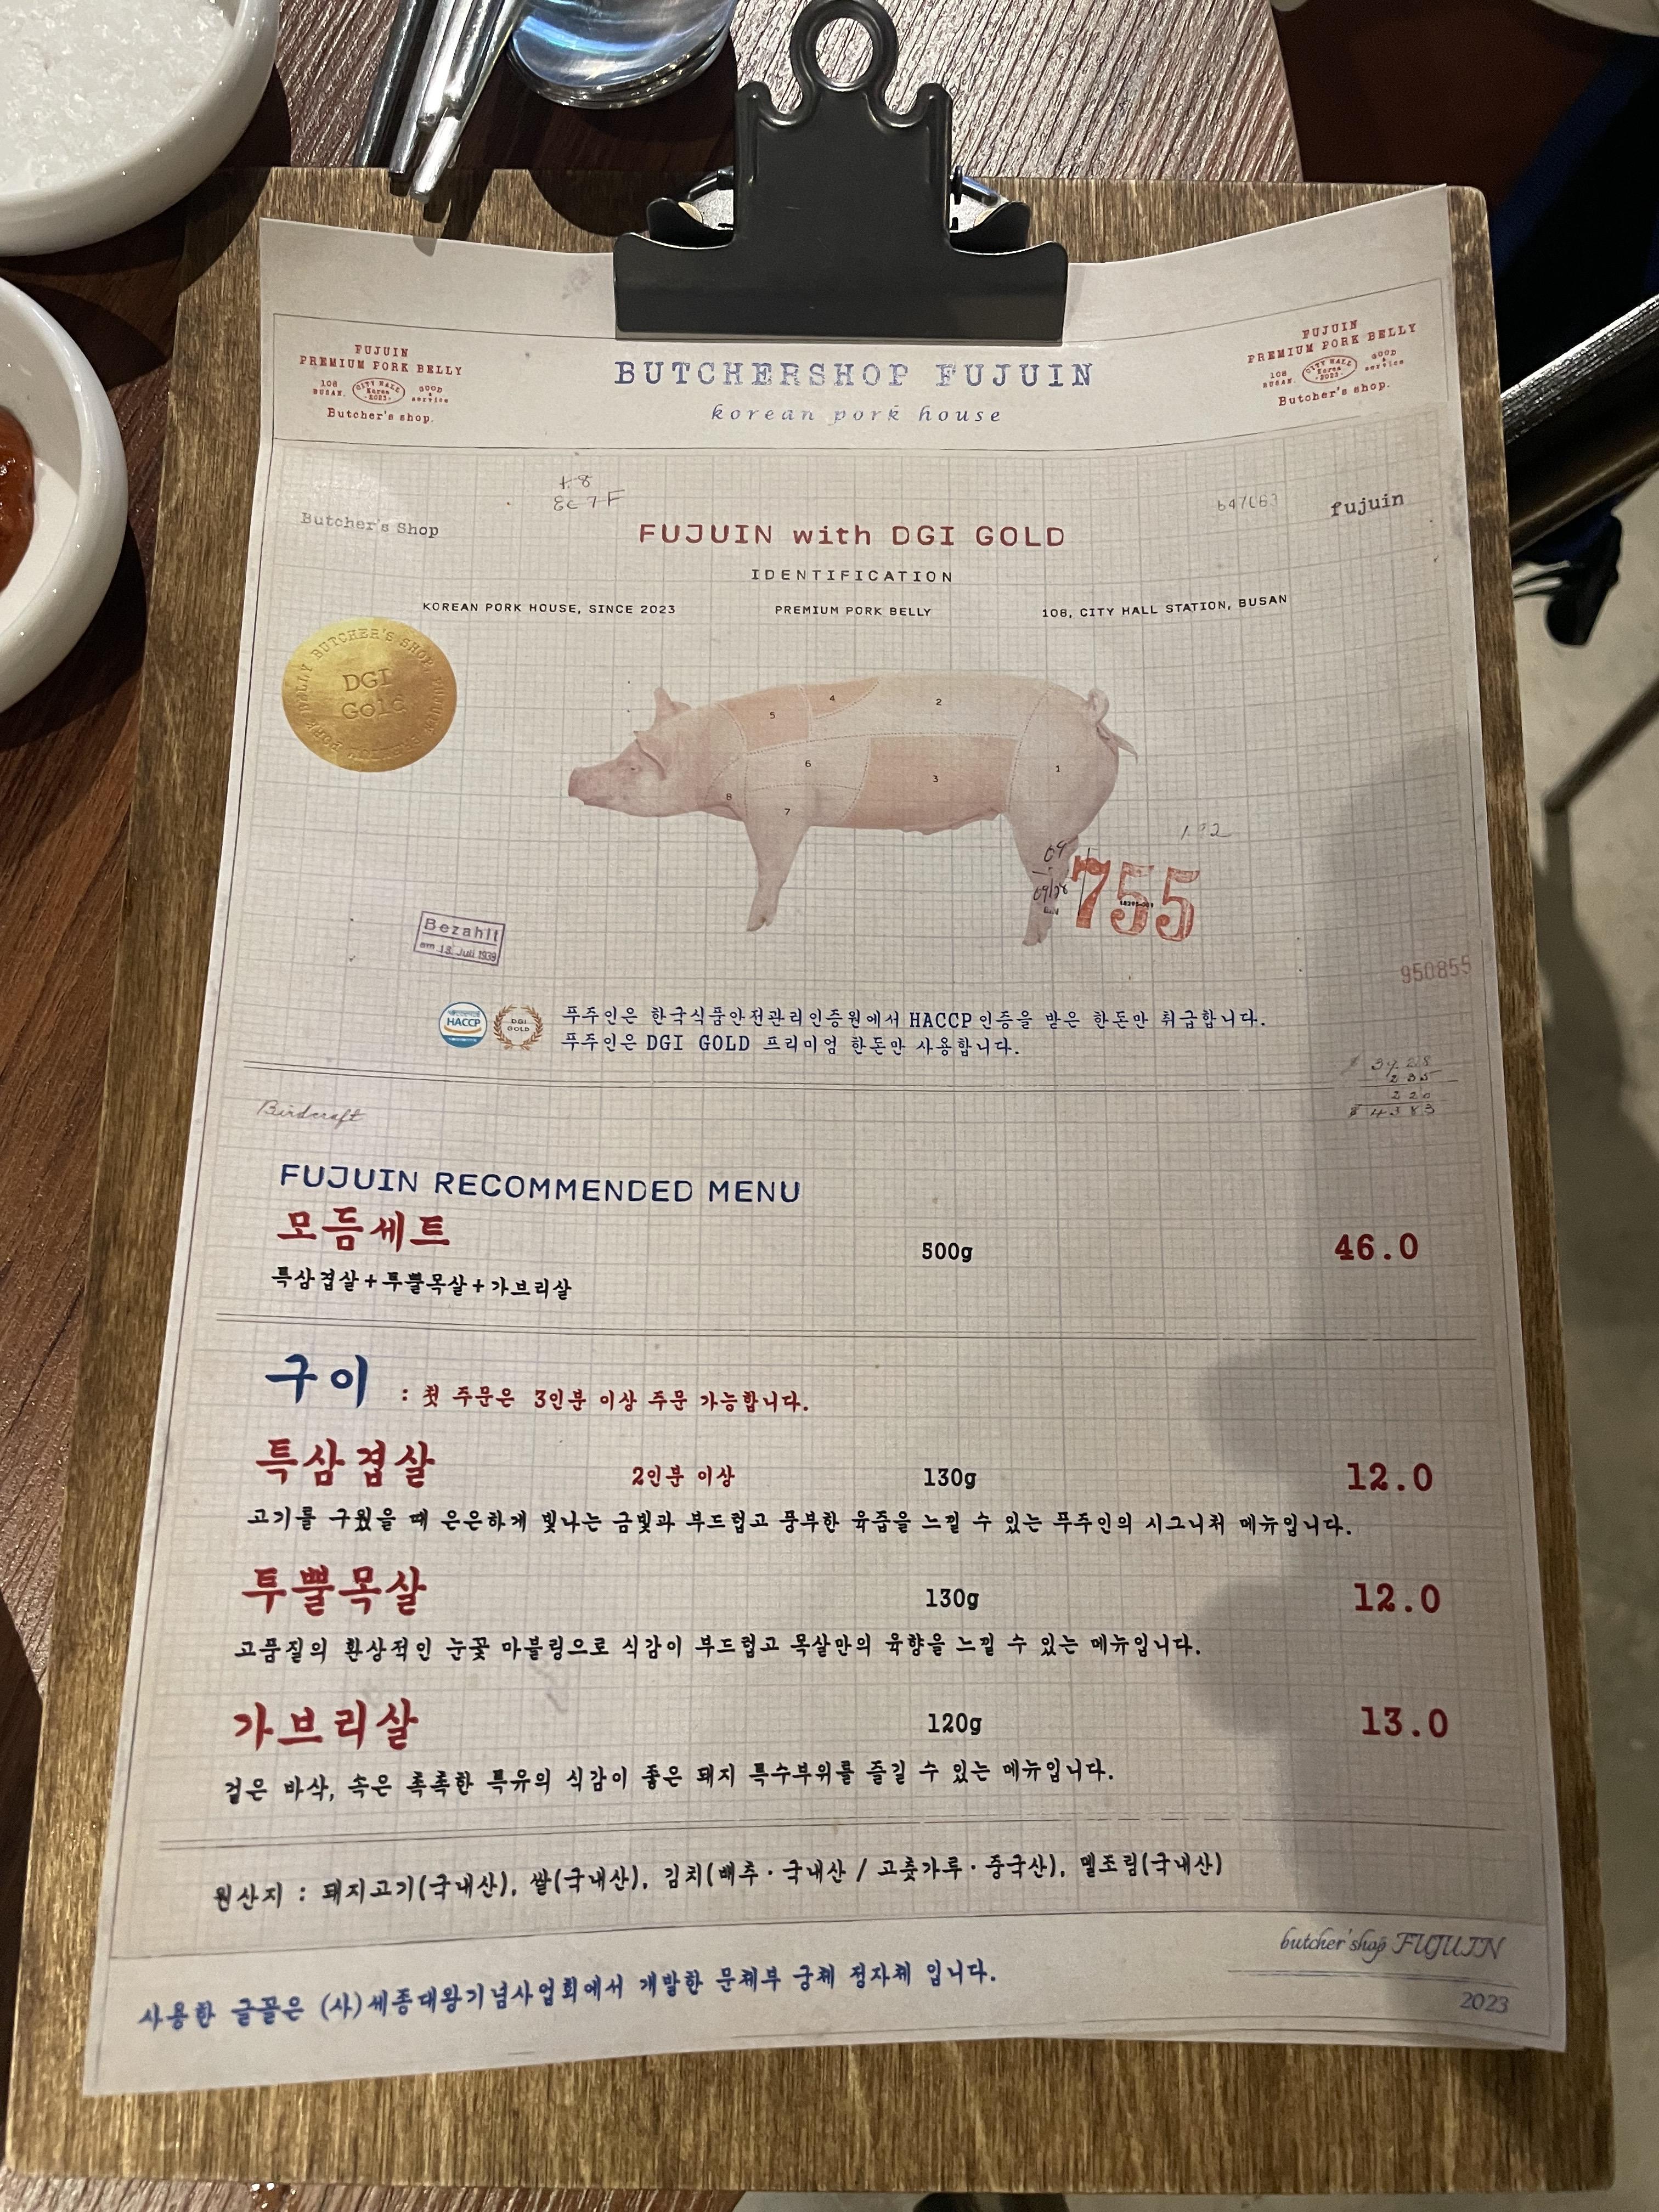 FUJUIN
PREMIUM PORK BELLY
108 BUSAN. CITY HALL Korea -2023- GOOD & service
Butcher's shop.
BUTCHERSHOP FUJUIN
korean pork house
FUJUIN
PREMIUM PORK BELLY
108 BUSAN. CITY HALL Korea -2023- GOOD & service
Butcher's shop.
Butcher's Shop
FUJUIN with DGI GOLD
fujuin
IDENTIFICATION
KOREAN PORK HOUSE, SINCE 2023
PREMIUM PORK BELLY
108, CITY HALL STATION, BUSAN
DGI
Gold
4
2
5
6
3
1
8
7
755
Bezahlt
am 13. Juli 1939
950855
HACCP
DGI
GOLD
푸주인은 한국식품안전관리인증원에서 HACCP 인증을 받은 한돈만 취급합니다.
푸주인은 DGI GOLD 프리미엄 한돈만 사용합니다.
Birdcraft
4383
FUJUIN RECOMMENDED MENU
모듬세트 500g 46.0
특삼겹살+투뿔목살+가브리살
구이 : 첫 주문은 3인분 이상 주문 가능합니다.
특삼겹살 2인분 이상 130g 12.0
고기를 구웠을 때 은은하게 빛나는 금빛과 부드럽고 풍부한 육즙을 느낄 수 있는 푸주인의 시그니처 메뉴입니다.
투뿔목살 130g 12.0
고품질의 환상적인 눈꽃 마블링으로 식감이 부드럽고 목살만의 육향을 느낄 수 있는 메뉴입니다.
가브리살 120g 13.0
겉은 바삭, 속은 촉촉한 특유의 식감이 좋은 돼지 특수부위를 즐길 수 있는 메뉴입니다.
원산지 : 돼지고기(국내산), 쌀(국내산), 김치(배추·국내산 / 고춧가루·중국산), 멜조림(국내산)
butcher'shop FUJUIN
2023
사용한 글꼴은 (사)세종대왕기념사업회에서 개발한 문체부 궁체 정자체 입니다.